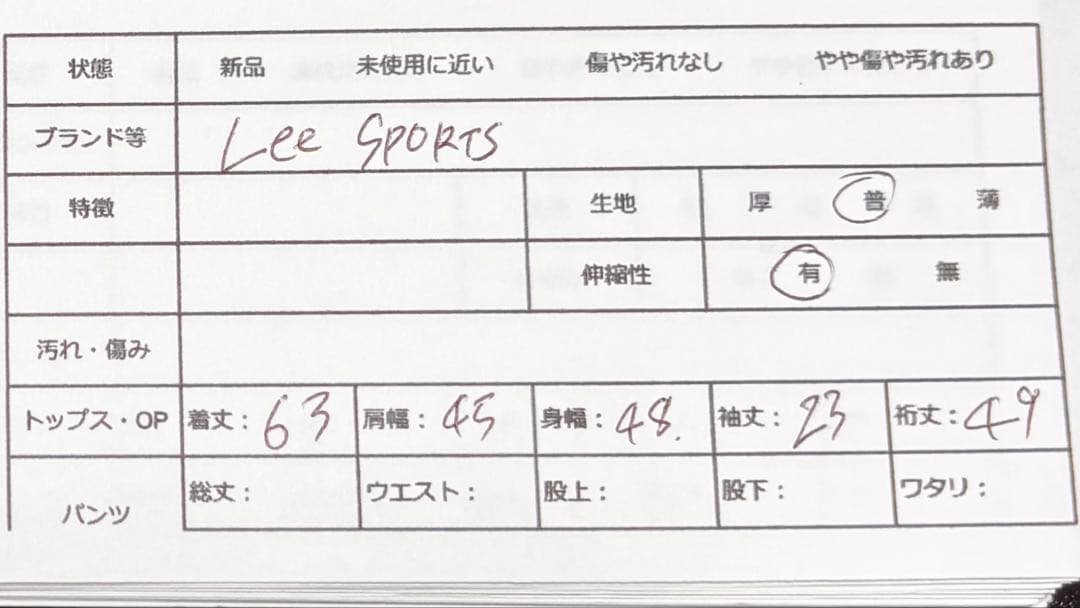 状態 新品 未使用に近い 傷や汚れなし やや傷や汚れあり
ブランド等 Lee SPORTS
特徴 生地 厚 普 薄
伸縮性 有 無
汚れ・傷み
トップス・OP 着丈：63 肩幅：45 身幅：48. 袖丈：23 裄丈：49
パンツ 総丈： ウエスト： 股上： 股下： ワタリ：